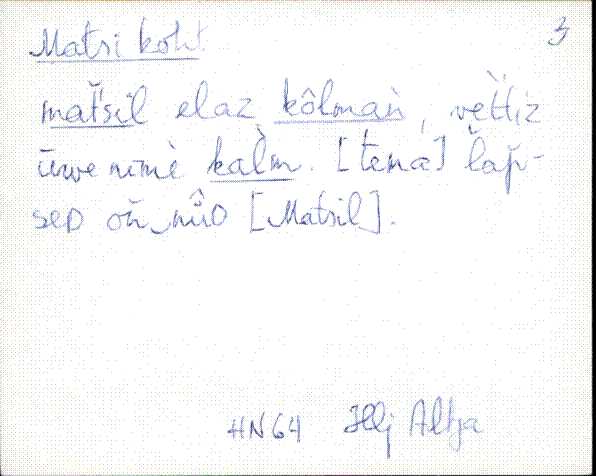 Matsi koht 3
mat̆sil elaz kôlmaǹ, vet̆t̆iz
ūwe nimè kalm̀. [tema] lap̆-
sep on̆ nûo [Matsil].
HN64 Hlj Altja